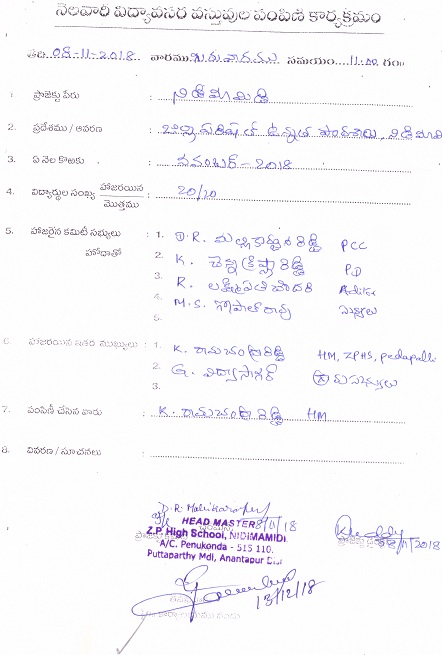 నెలవారీ విద్యావసర వస్తువుల పంపిణీ కార్యక్రమం
తేది 08-11-2018 వారము గురువారము సమయం 11.00 గం॥
1. ప్రాజెక్టు పేరు : నిడిమామిడి
2. ప్రదేశము / ఆవరణ : జిల్లా పరిషత్ ఉన్నత పాఠశాల, నిడిమామిడి
3. ఏ నెల కొఱకు : నవంబర్ - 2018
4. విద్యార్థుల సంఖ్య హాజరయిన : 20/20
మొత్తము
5. హాజరైన కమిటీ సభ్యులు : 1. D.R. మల్లికార్జున రెడ్డి PCC
హోదాతో 2. K. చెన్నక్రిష్టా రెడ్డి PD
3. R. లక్ష్మీపతి చౌదరి Auditor
4. M.S. గోపాల్ రావు
5.
6. హాజరయిన ఇతర ముఖ్యులు : 1. K. రామచంద్రారెడ్డి HM, ZPHS, pedapalli
2. G. విద్యాసాగర్
3.
7. పంపిణీ చేసిన వారు : K. రామచంద్రా రెడ్డి HM
8. వివరణ / సూచనలు :
D.R. Mallikarjun
8/11/18
HEAD MASTER
Z.P. High School, NIDIMAMIDI
A/C. Penukonda - 515 110.
Puttaparthy Mdl, Anantapur Dist
8/11/2018
13/12/18